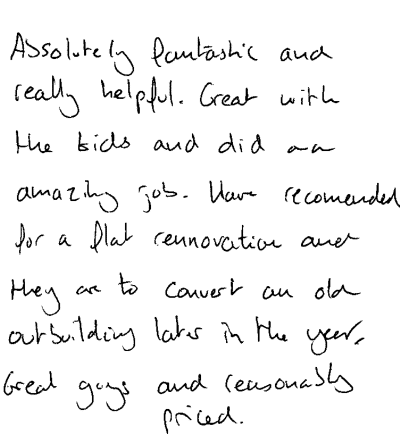 Absolutely fantastic and
really helpful. Great with
the kids and did an
amazing job. Have recomended
for a flat rennovation and
they are to convert an old
outbuilding later in the year.
Great guys and reasonably
priced.